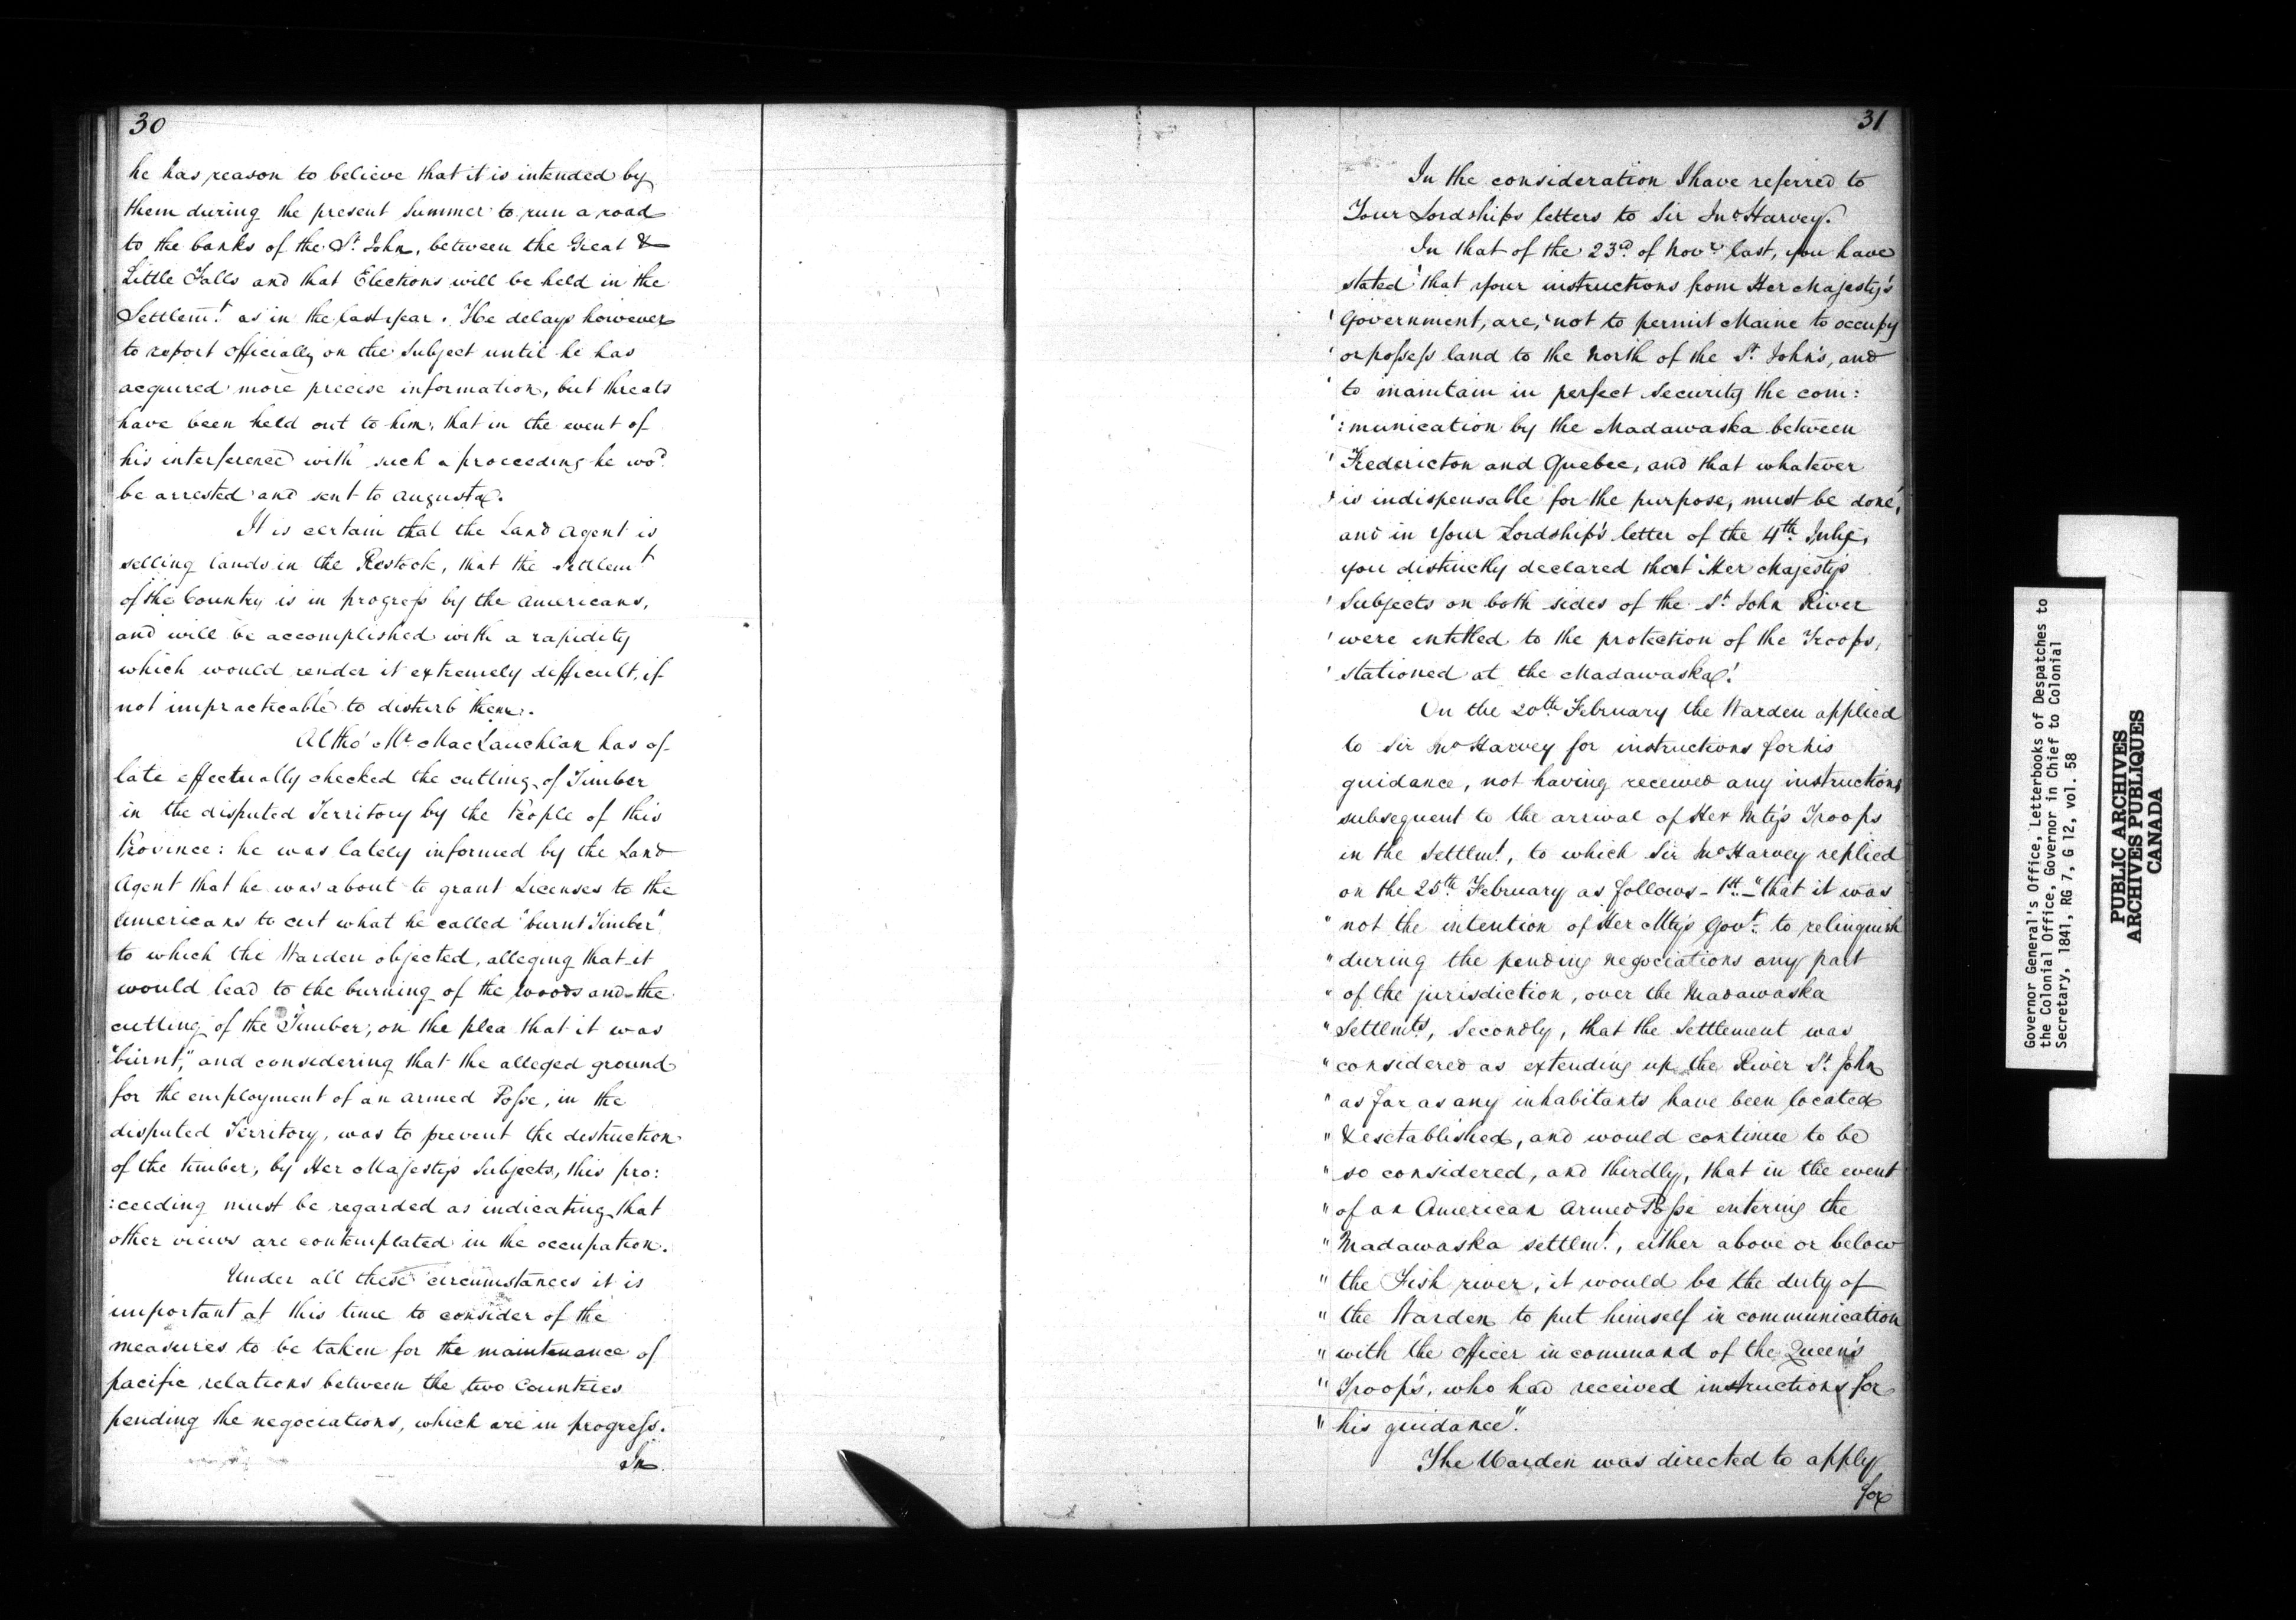 30
he has reason to believe that it is intended by
them during the present Summer to run a road
to the banks of the St John, between the Great &
Little Falls and that Elections will be held in the
Settlemt. as in the last year. He delays however
to report officially on the subject until he has
acquired more precise information, but threats
have been held out to him, that in the event of
his interference with such a proceeding he wod.
be arrested and sent to Augusta.
It is certain that the Land Agent is
selling lands in the Restook, that the Settlemt
of the Country is in progress by the Americans,
and will be accomplished with a rapidity
which would render it extremely difficult, if
not impracticable to disturb them.
Altho' Mr. MacLauchlan has of
late effectually checked the cutting of Timber
in the disputed Territory by the People of this
Province: he was lately informed by the Land
Agent that he was about to grant Licenses to the
Americans to cut what he called "burnt Timber"
to which the Warden objected, alleging that it
would lead to the burning of the woods and the
cutting of the Timber, on the plea that it was
"burnt," and considering that the alleged ground
for the employment of an armed Posse, in the
disputed Territory, was to prevent the destruction
of the timber, by Her Majesty's Subjects, this pro:
:ceeding must be regarded as indicating that
other views are contemplated in the occupation.
Under all these circumstances it is
important at this time to consider of the
measures to be taken for the maintenance of
pacific relations between the two Countries
pending the negociations, which are in progress.
In
31
In the consideration I have referred to
Your Lordships letters to Sir Jno Harvey.
In that of the 23d of Novr. last, you have
stated 'that your instructions from Her Majesty's
' Government, are, 'not to permit Maine to occupy
' or possess land to the north of the St. John's, and
' to maintain in perfect security the com:
' :munication by the Madawaska between
' Fredericton and Quebec, and that whatever
' is indispensable for the purpose, must be done,'
and in your Lordship's letter of the 4th July,
you distinctly declared that 'Her Majesty's
' Subjects on both sides of the St. John River
' were entitled to the protection of the Troops,
' stationed at the Madawaska'.
On the 20th February the Warden applied
to Sir Jno Harvey for instructions for his
guidance, not having received any instructions
subsequent to the arrival of Her Mty's Troops
in the Settlmt., to which Sir Jno Harvey replied
on the 25th February as follows - 1st. - "that it was
" not the intention of Her Mty's Govt. to relinquish
" during the pending negociations any part
" of the jurisdiction, over the Madawaska
" Settlmts, Secondly, that the Settlement was
" considered as extending up the River St. John
" as far as any inhabitants have been located
" & esctablished, and would continue to be
" so considered, and thirdly, that in the event
" of an American Armed Posse entering the
" Madawaska settlmt., either above or below
" the Fish river, it would be the duty of
" the Warden to put himself in communication
" with the Officer in command of the Queen's
" Troops, who had received instructions for
" his guidance".
The Warden was directed to apply
for
Governor General's Office, Letterbooks of Despatches to
the Colonial Office, Governor in Chief to Colonial
Secretary, 1841, RG 7, G 12, vol. 58
PUBLIC ARCHIVES
ARCHIVES PUBLIQUES
CANADA